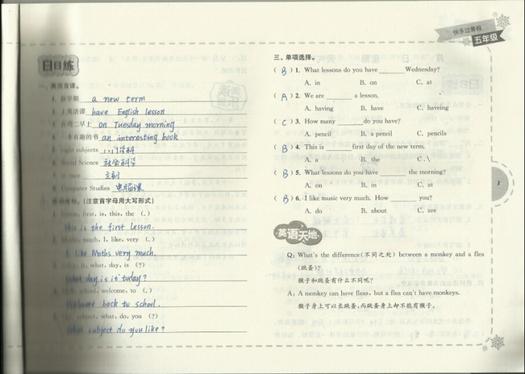 快乐过暑假
五年级
日日练
a new term
have English lesson
on Tuesday morning
an interesting book
subjects
Social Science 社会科学
Computer Studies 电脑课
(注意首字母用大写形式)
lesson, first, is, this, the (.)
This is the first lesson.
much, I, like, very (.)
I like Maths very much.
it, what, day, is (?)
What day is it today?
school, welcome, to (.)
Welcome back to school.
subject, what, do, you (?)
What subject do you like?
三、单项选择。
( B ) 1. What lessons do you have Wednesday?
A. in B. on C. at
( A ) 2. We are a lesson.
A. having B. have C. haveing
( C ) 3. How many do you have?
A. pencil B. a pencil C. pencils
( B ) 4. This is first day of the new term.
A. a B. the C. \
( B ) 5. What lessons do you have the morning?
A. on B. in C. at
( B ) 6. I like music very much. How you?
A. do B. about C. are
英语天地
Q: What's the difference (不同之处) between a monkey and a flea
(跳蚤)?
猴子和跳蚤有什么不同呢?
A: A monkey can have fleas, but a flea can't have monkeys.
猴子身上可以长跳蚤,而跳蚤身上却不能有猴子。
1